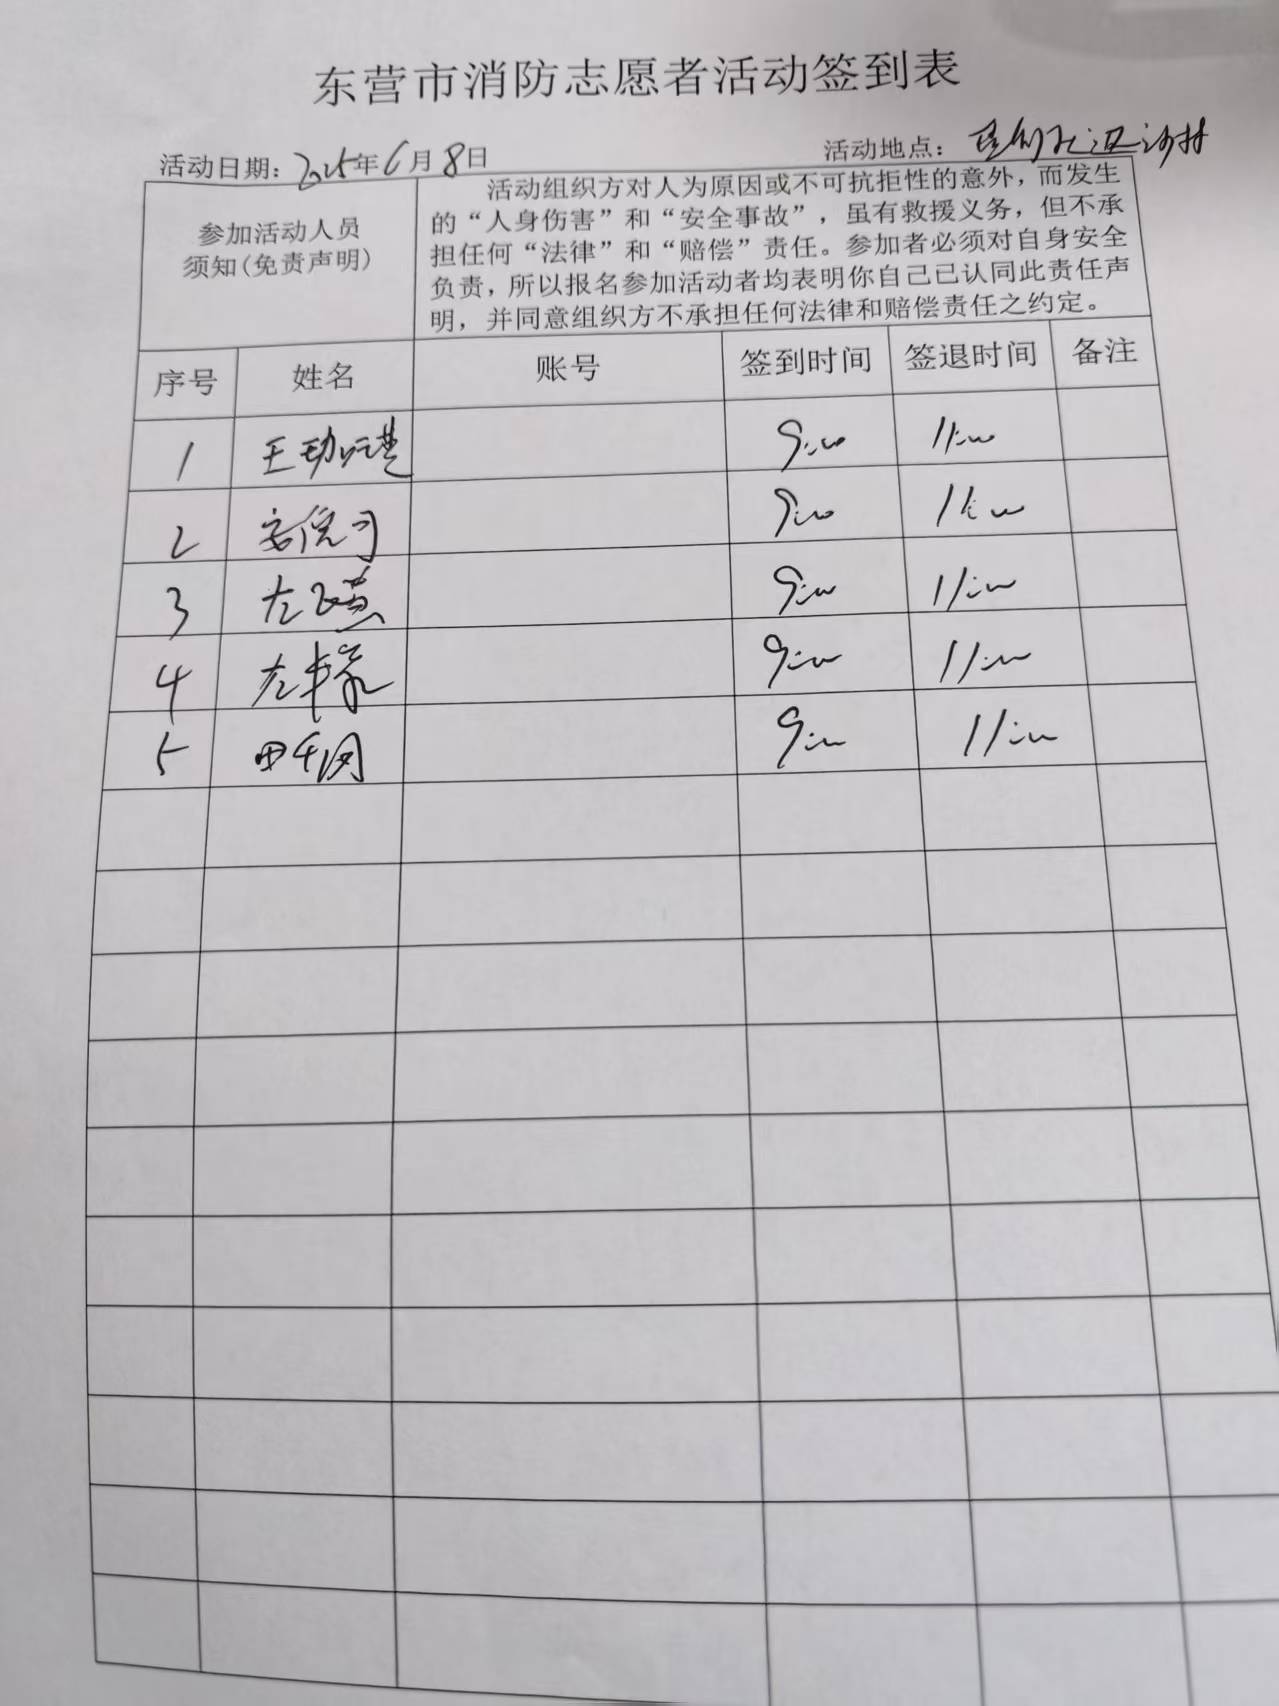 东营市消防志愿者活动签到表
活动日期：2025年6月8日
活动地点：
参加活动人员
须知(免责声明)
活动组织方对人为原因或不可抗拒性的意外，而发生
的“人身伤害”和“安全事故”，虽有救援义务，但不承
担任何“法律”和“赔偿”责任。参加者必须对自身安全
负责，所以报名参加活动者均表明你自己已认同此责任声
明，并同意组织方不承担任何法律和赔偿责任之约定。
序号 姓名 账号 签到时间 签退时间 备注
1 9:00 11:00
2 9:00 11:00
3 9:00 11:00
4 9:00 11:00
5 9:00 11:00